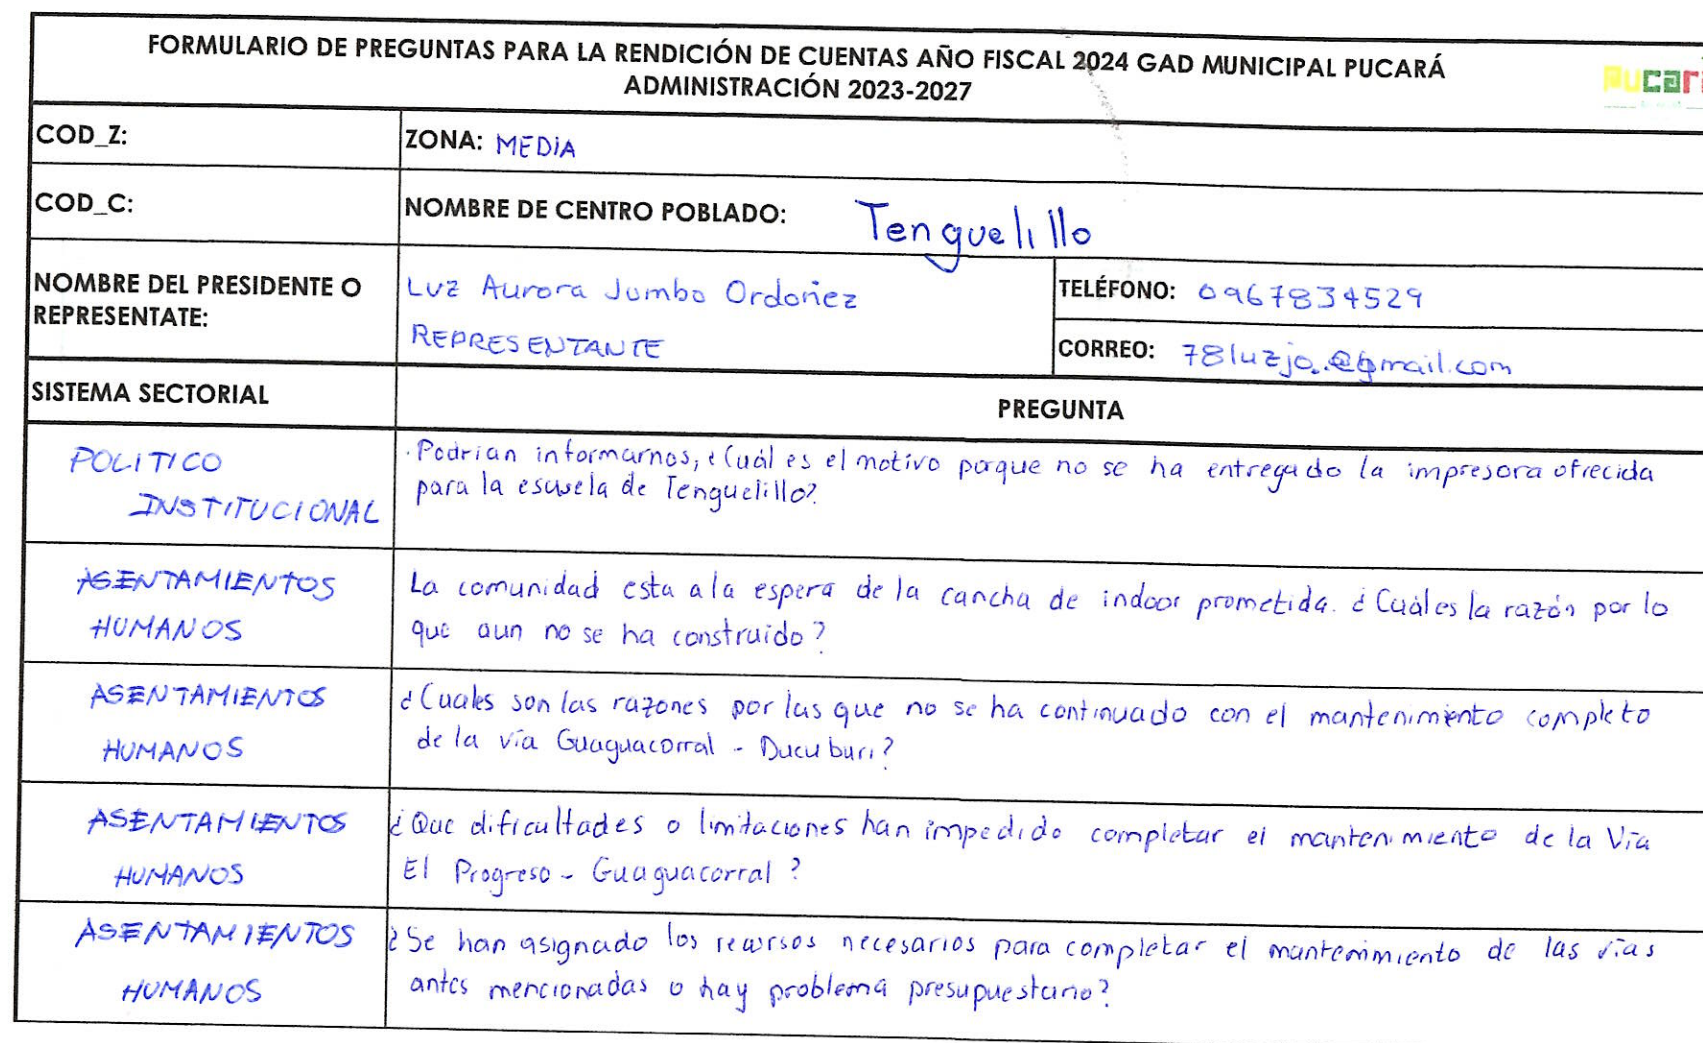 FORMULARIO DE PREGUNTAS PARA LA RENDICIÓN DE CUENTAS AÑO FISCAL 2024 GAD MUNICIPAL PUCARÁ
ADMINISTRACIÓN 2023-2027
COD_Z:
ZONA: MEDiA
COD_C:
NOMBRE DE CENTRO POBLADO: Tenguelillo
NOMBRE DEL PRESIDENTE O
REPRESENTATE:
Luz Aurora Jumbo Ordoñez
REPRESENTANTE
TELÉFONO: 0967834529
CORREO: 78luzjo.@gmail.com
SISTEMA SECTORIAL
PREGUNTA
POLITICO
INSTITUCIONAL
Podrian informarnos, ¿Cuál es el motivo porque no se ha entregado la impresora ofrecida
para la escuela de Tenguelillo?
ASENTAMIENTOS
HUMANOS
La comunidad esta a la espera de la cancha de indoor prometida. ¿Cuál es la razón por lo
que aun no se ha construido?
ASENTAMIENTOS
HUMANOS
¿Cuales son las razones por las que no se ha continuado con el mantenimiento completo
de la vía Guaguacorral - Ducuburi?
ASENTAMIENTOS
HUMANOS
¿Que dificultades o limitaciones han impedido completar el mantenimiento de la Vía
El Progreso - Guaguacorral?
ASENTAMIENTOS
HUMANOS
¿Se han asignado los recursos necesarios para completar el mantenimiento de las vías
antes mencionadas o hay problema presupuestario?